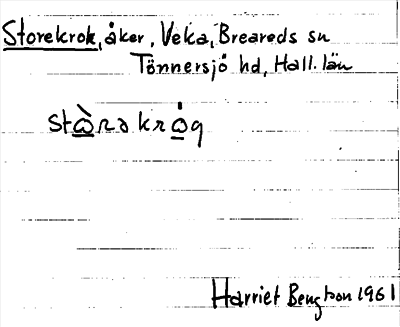 Storekrok, åker, Veka, Breareds sn
Tönnersjö hd, Hall. län
stò̲rəkrȯ̲g
Harriet Bengtson 1961